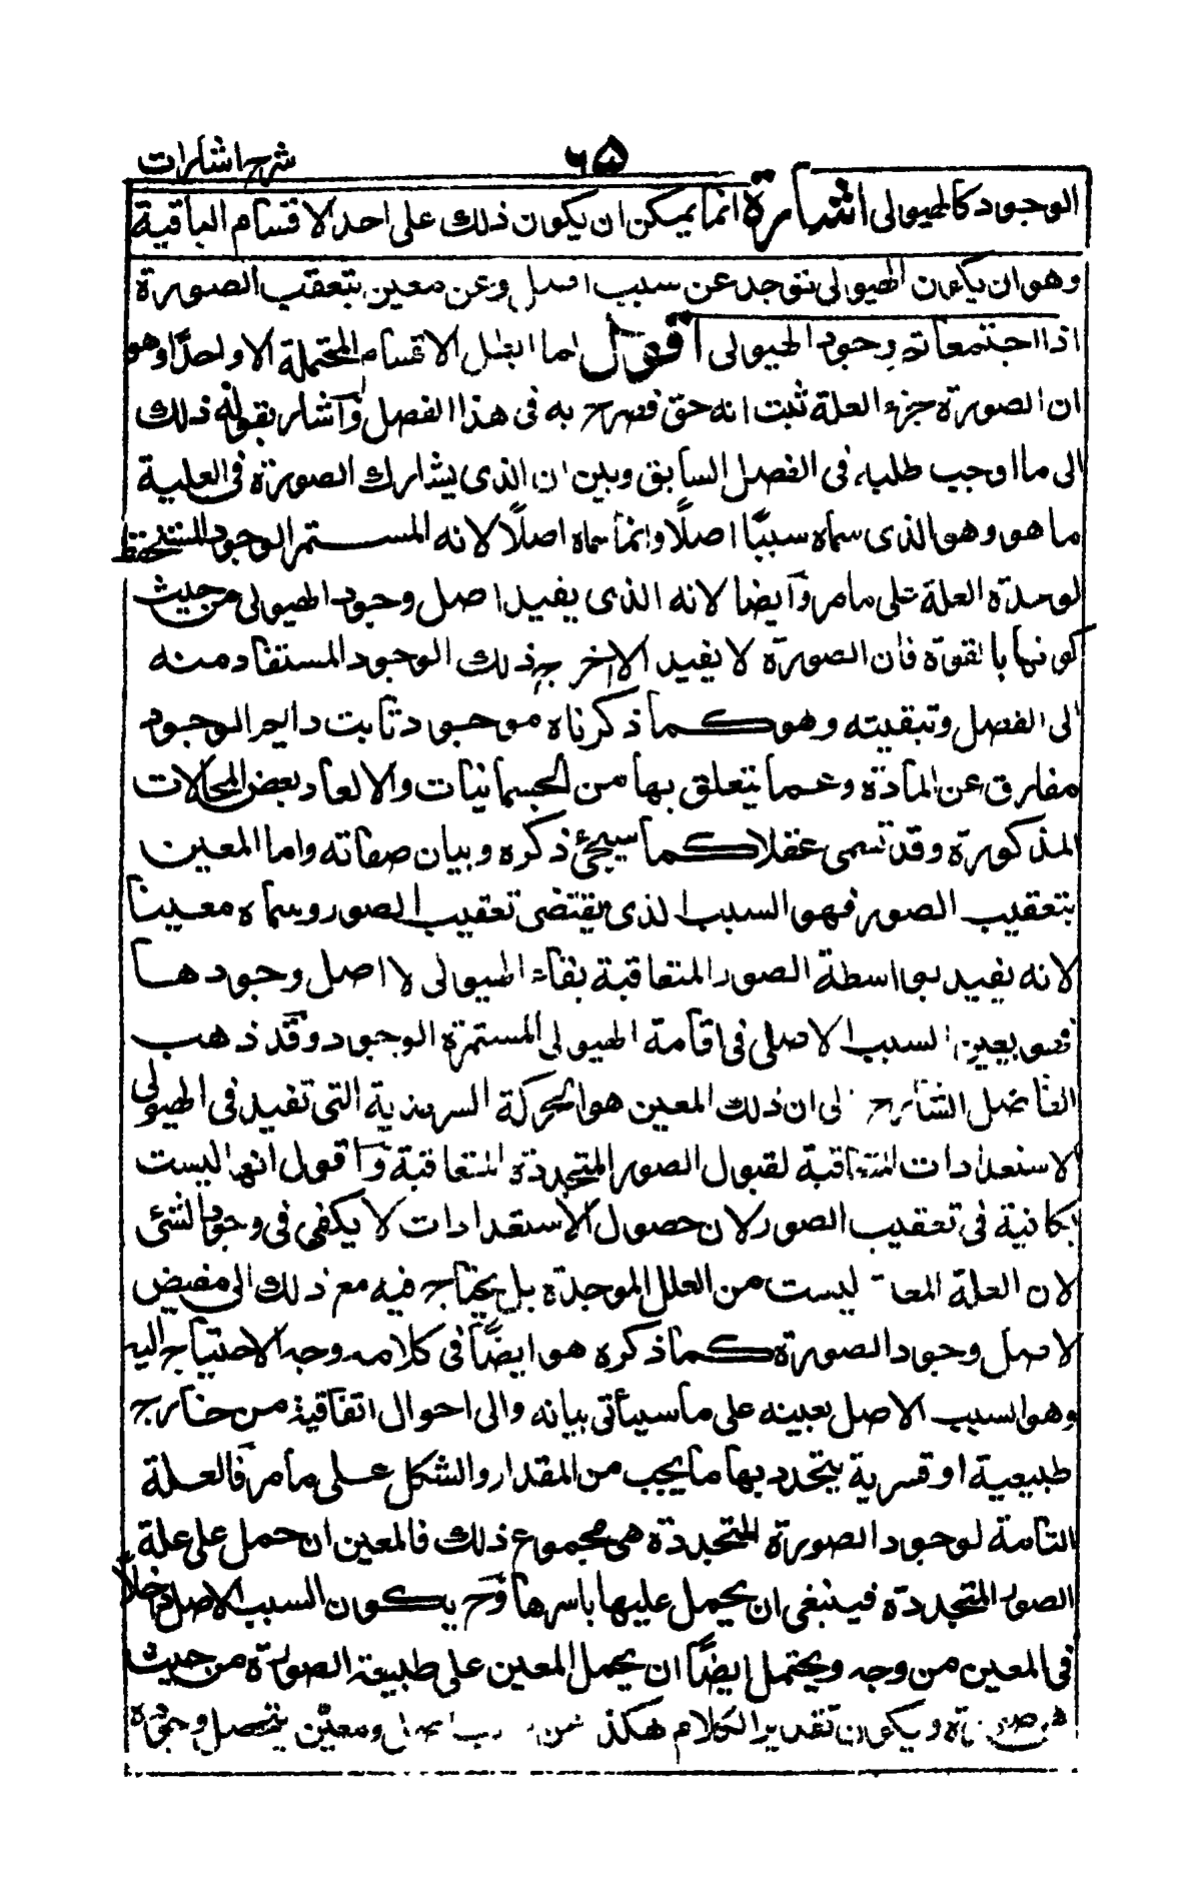 شرح اشارات
٦٥
الوجود كالهيولى اشارة انما يمكن ان يكون ذلك على احد الاقسام الباقية
وهو ان يكون الهيولى توجد عن سبب اصل وعن معين بتعقيب الصورة
اذا اجتمعا تم وجود الهيولى اقول لما ابطل الاقسام المحتملة الا واحدًا وهو
ان الصورة جزء العلة ثبت انه حق فصرح به فى هذا الفصل واشار بقوله ذلك
الى ما اوجب طلبه فى الفصل السابق وبين ان الذى يشارك الصورة فى العلية
ما هو وهو الذى سماه سببًا اصلًا وانما سماه اصلًا لانه المستمر الوجود المستحفظ
لوحدة العلة على ما مر وايضا لانه الذى يفيد اصل وجود الهيولى من حيث
كونها بالقوة فان الصورة لا يفيد الا خرج ذلك الوجود المستفاد منه
الى الفصل وتبقيته وهو كما ذكرناه موجود ثابت دايم الوجود
مفارق عن المادة وعما يتعلق بها من الجسمانيات والا لعاد بعض المحالات
المذكورة وقد تسمى عقلا كما سيجئ ذكره وبيان صفاته واما المعين
بتعقيب الصور فهو السبب الذى يقتضى تعقيب الصور وسماه معينا
لانه يفيد بواسطة الصور المتعاقبة بقاء الهيولى لا اصل وجودها
فهو يعين السبب الاصلى فى اقامة الهيولى المستمرة الوجود وقد ذهب
الفاضل الشارح الى ان ذلك المعين هو الحركة السرمدية التى تفيد فى الهيولى
الاستعدادات المتعاقبة لقبول الصور المتجددة المتعاقبة واقول انها ليست
بكافية فى تعقيب الصور لان حصول الاستعدادات لا يكفى فى وجود الشئ
لان العلة المعدة ليست من العلل الموجدة بل يحتاج فيه مع ذلك الى مفيض
لاصل وجود الصورة كما ذكره هو ايضًا فى كلامه وجه الاحتياج اليه
وهو السبب الاصل بعينه على ما سيأتى بيانه والى احوال اتفاقية من خارج
طبيعية او قسرية يتحدد بها ما يجب من المقدار والشكل على ما مر فالعلة
التامة لوجود الصورة المتجددة هى مجموع ذلك فالمعين ان حمل على علة
الصور المتجددة فينبغى ان يحمل عليها باسرها وح يكون السبب الاصل داخلًا
فى المعين من وجه ويحتمل ايضًا ان يحمل المعين على طبيعة الصورة من حيث
هى صورة ويكون تقدير الكلام هكذا عن سبب اصل ومعين يتحصل وجوده